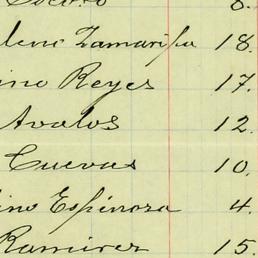 Socoro 8.
leno Zamaripa 18.
ino Reyes 17.
Avalos 12.
Cuevas 10.
ino Espinosa 4.
Ramirez 15.